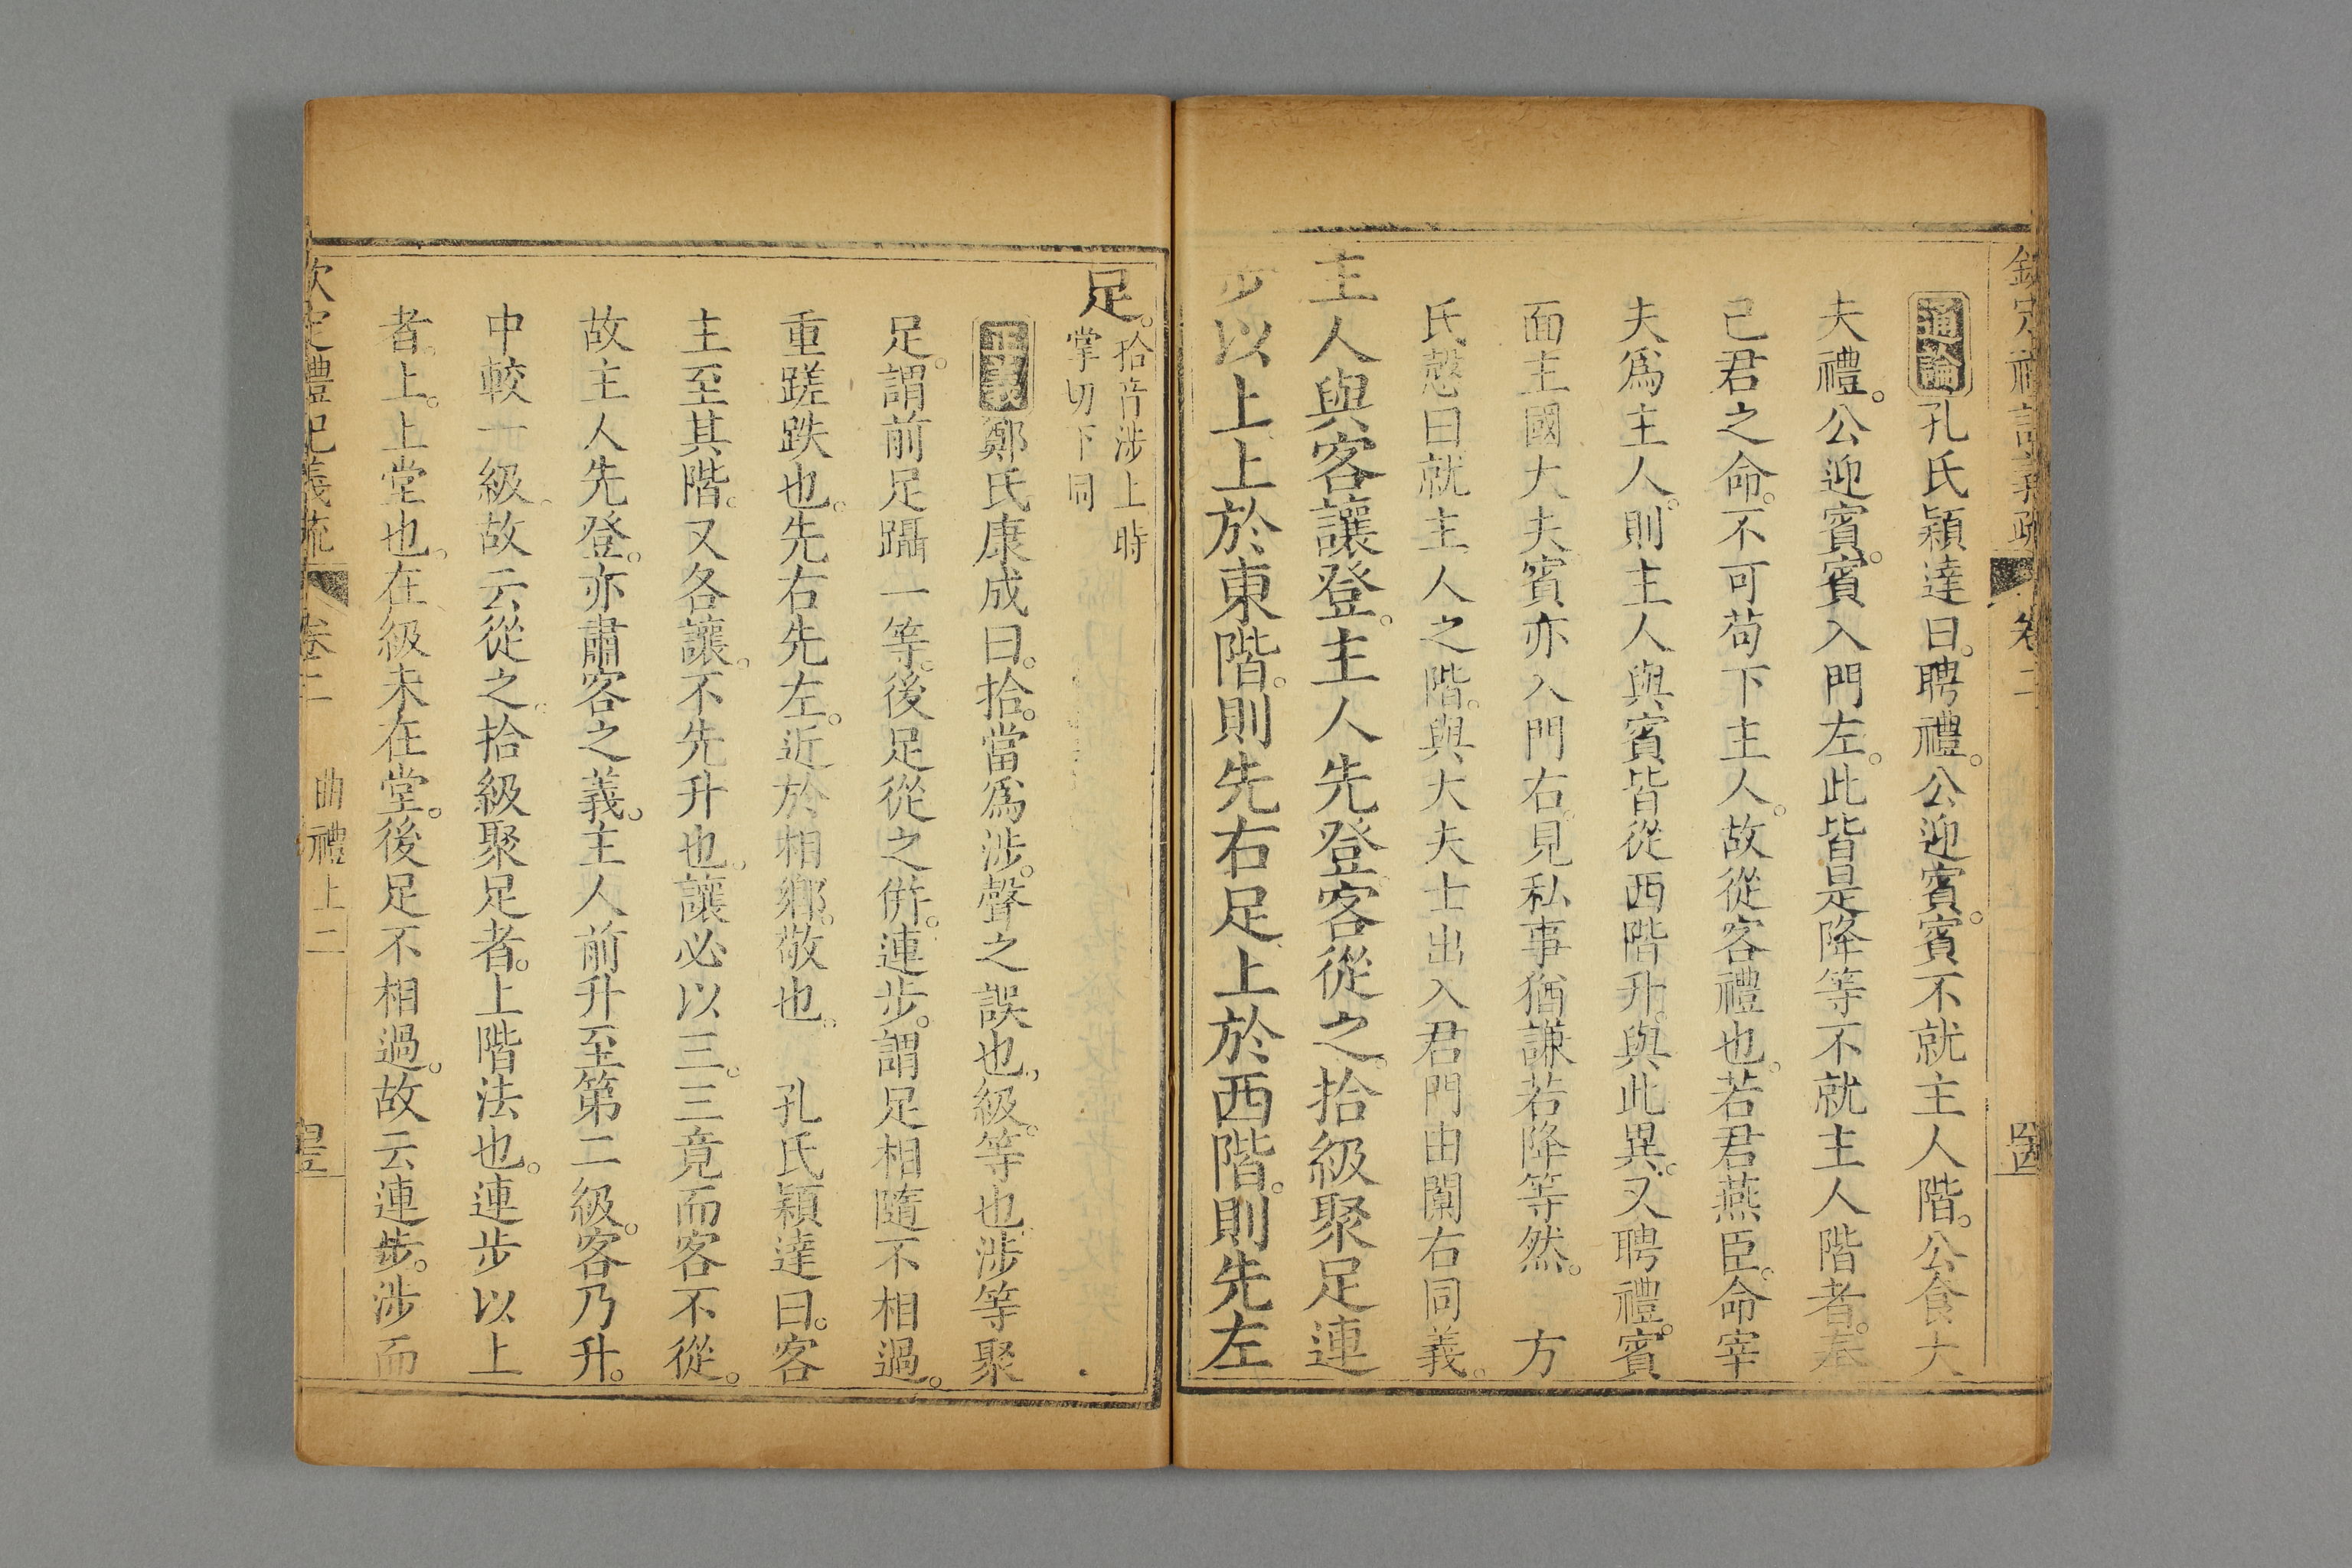 欽定禮記義疏 卷二
通論孔氏穎達曰。聘禮。公迎賓。賓不就主人階。公食大
夫禮。公迎賓。賓入門左。此皆是降等不就主人階者。奉
己君之命。不可苟下主人。故從客禮也。若君燕臣。命宰
夫爲主人。則主人與賓皆從西階升。與此異。又聘禮。賓
面主國大夫。賓亦入門右。見私事猶謙若降等然。 方
氏慤曰就主人之階。與大夫士出入君門由闑右同義。
主人與客讓登。主人先登。客從之。拾級聚足連
步以上。上於東階。則先右足。上於西階。則先左
足。拾音涉上時
掌切下同
正義鄭氏康成曰。拾。當爲涉。聲之誤也。級。等也。涉等聚
足。謂前足躡一等。後足從之併。連步。謂足相隨不相過。
重蹉跌也。先右先左。近於相鄉。敬也。 孔氏穎達曰。客
主至其階。又各讓。不先升也。讓必以三。三竟而客不從。
故主人先登。亦肅客之義。主人前升至第二級。客乃升。
中較一級。故云從之。拾級聚足者。上階法也。連步以上
者。上。上堂也。在級未在堂。後足不相過。故云連步。涉而
欽定禮記義疏 卷二 曲禮上二